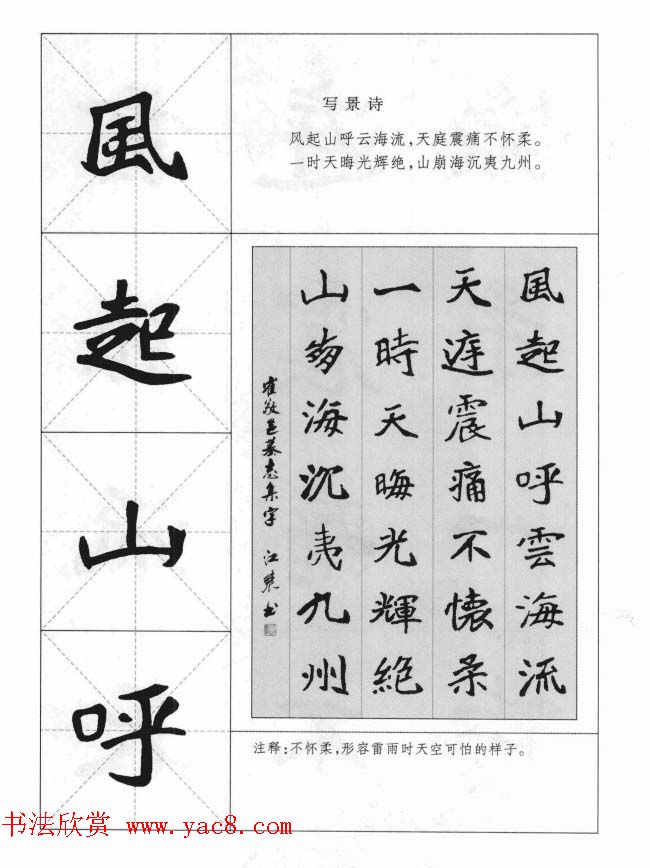 風
起
山
呼
写景诗
风起山呼云海流，天庭震痛不怀柔。
一时天晦光辉绝，山崩海沉夷九州。
風起山呼雲海流
天庭震痛不懷柔
一時天晦光輝絕
山崩海沉夷九州
崔敬邕墓志集字 江 书
注释：不怀柔，形容雷雨时天空可怕的样子。
书法欣赏 www.yac8.com